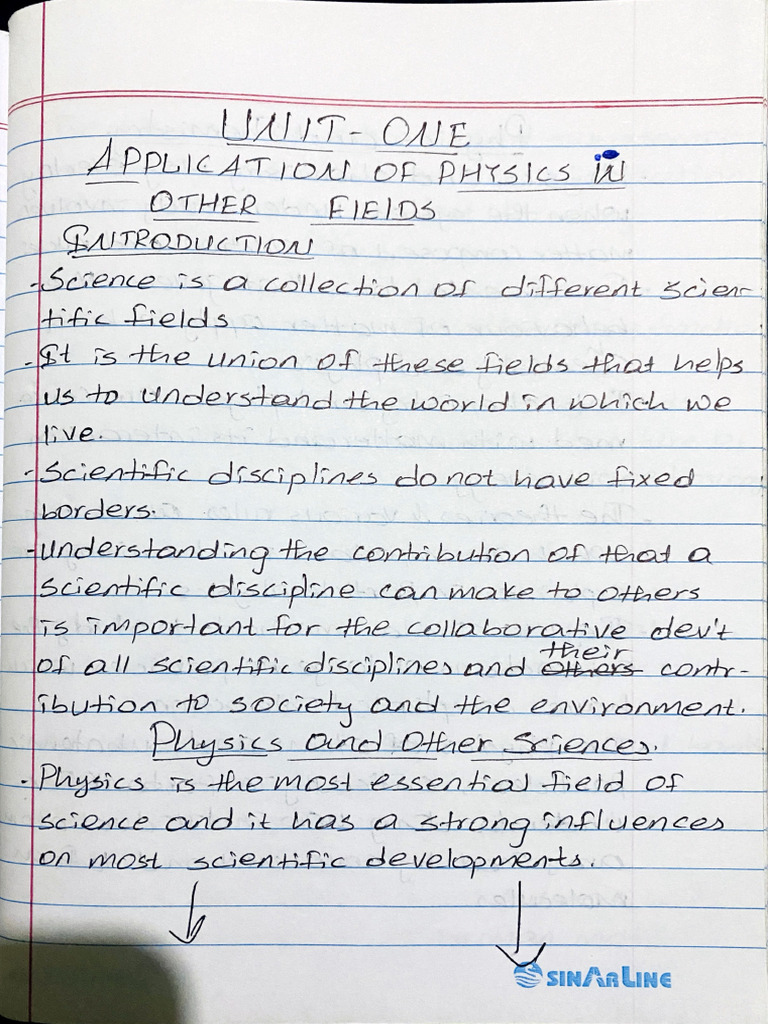 UNIT-ONE
APPLICATION OF PHYSICS IN
OTHER FIELDS
INTRODUCTION
- Science is a collection of different scien-
tific fields
- It is the union of these fields that helps
us to understand the world in which we
live.
- Scientific disciplines do not have fixed
borders.
- Understanding the contribution of that a
scientific discipline can make to others
is important for the collaborative dev't
their
of all scientific disciplines and others contr-
ibution to society and the environment.
Physics and Other Sciences.
- Physics is the most essential field of
science and it has a strong influences
on most scientific developments.
SINARLINE